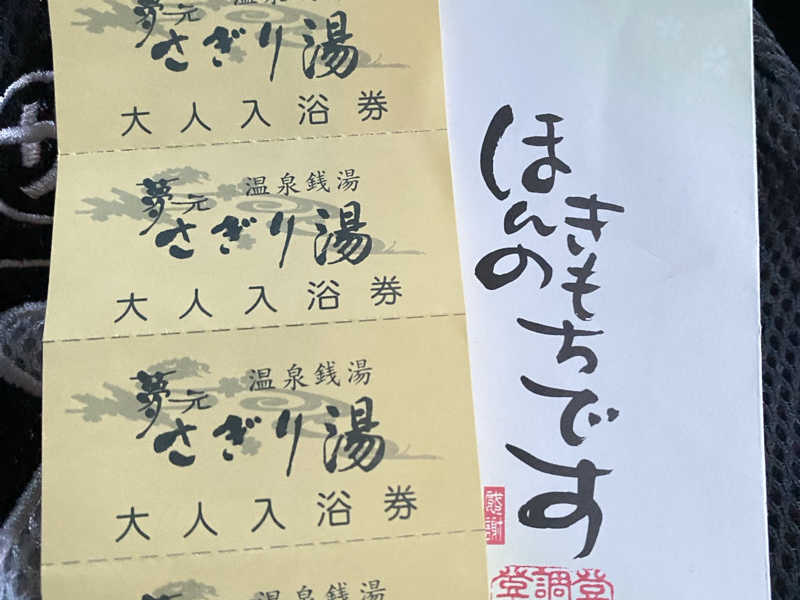 温泉銭湯
夢元
さぎり湯
大人入浴券
温泉銭湯
夢元
さぎり湯
大人入浴券
温泉銭湯
夢元
さぎり湯
大人入浴券
温泉銭湯
ほんの
きもちです
感謝
登調登